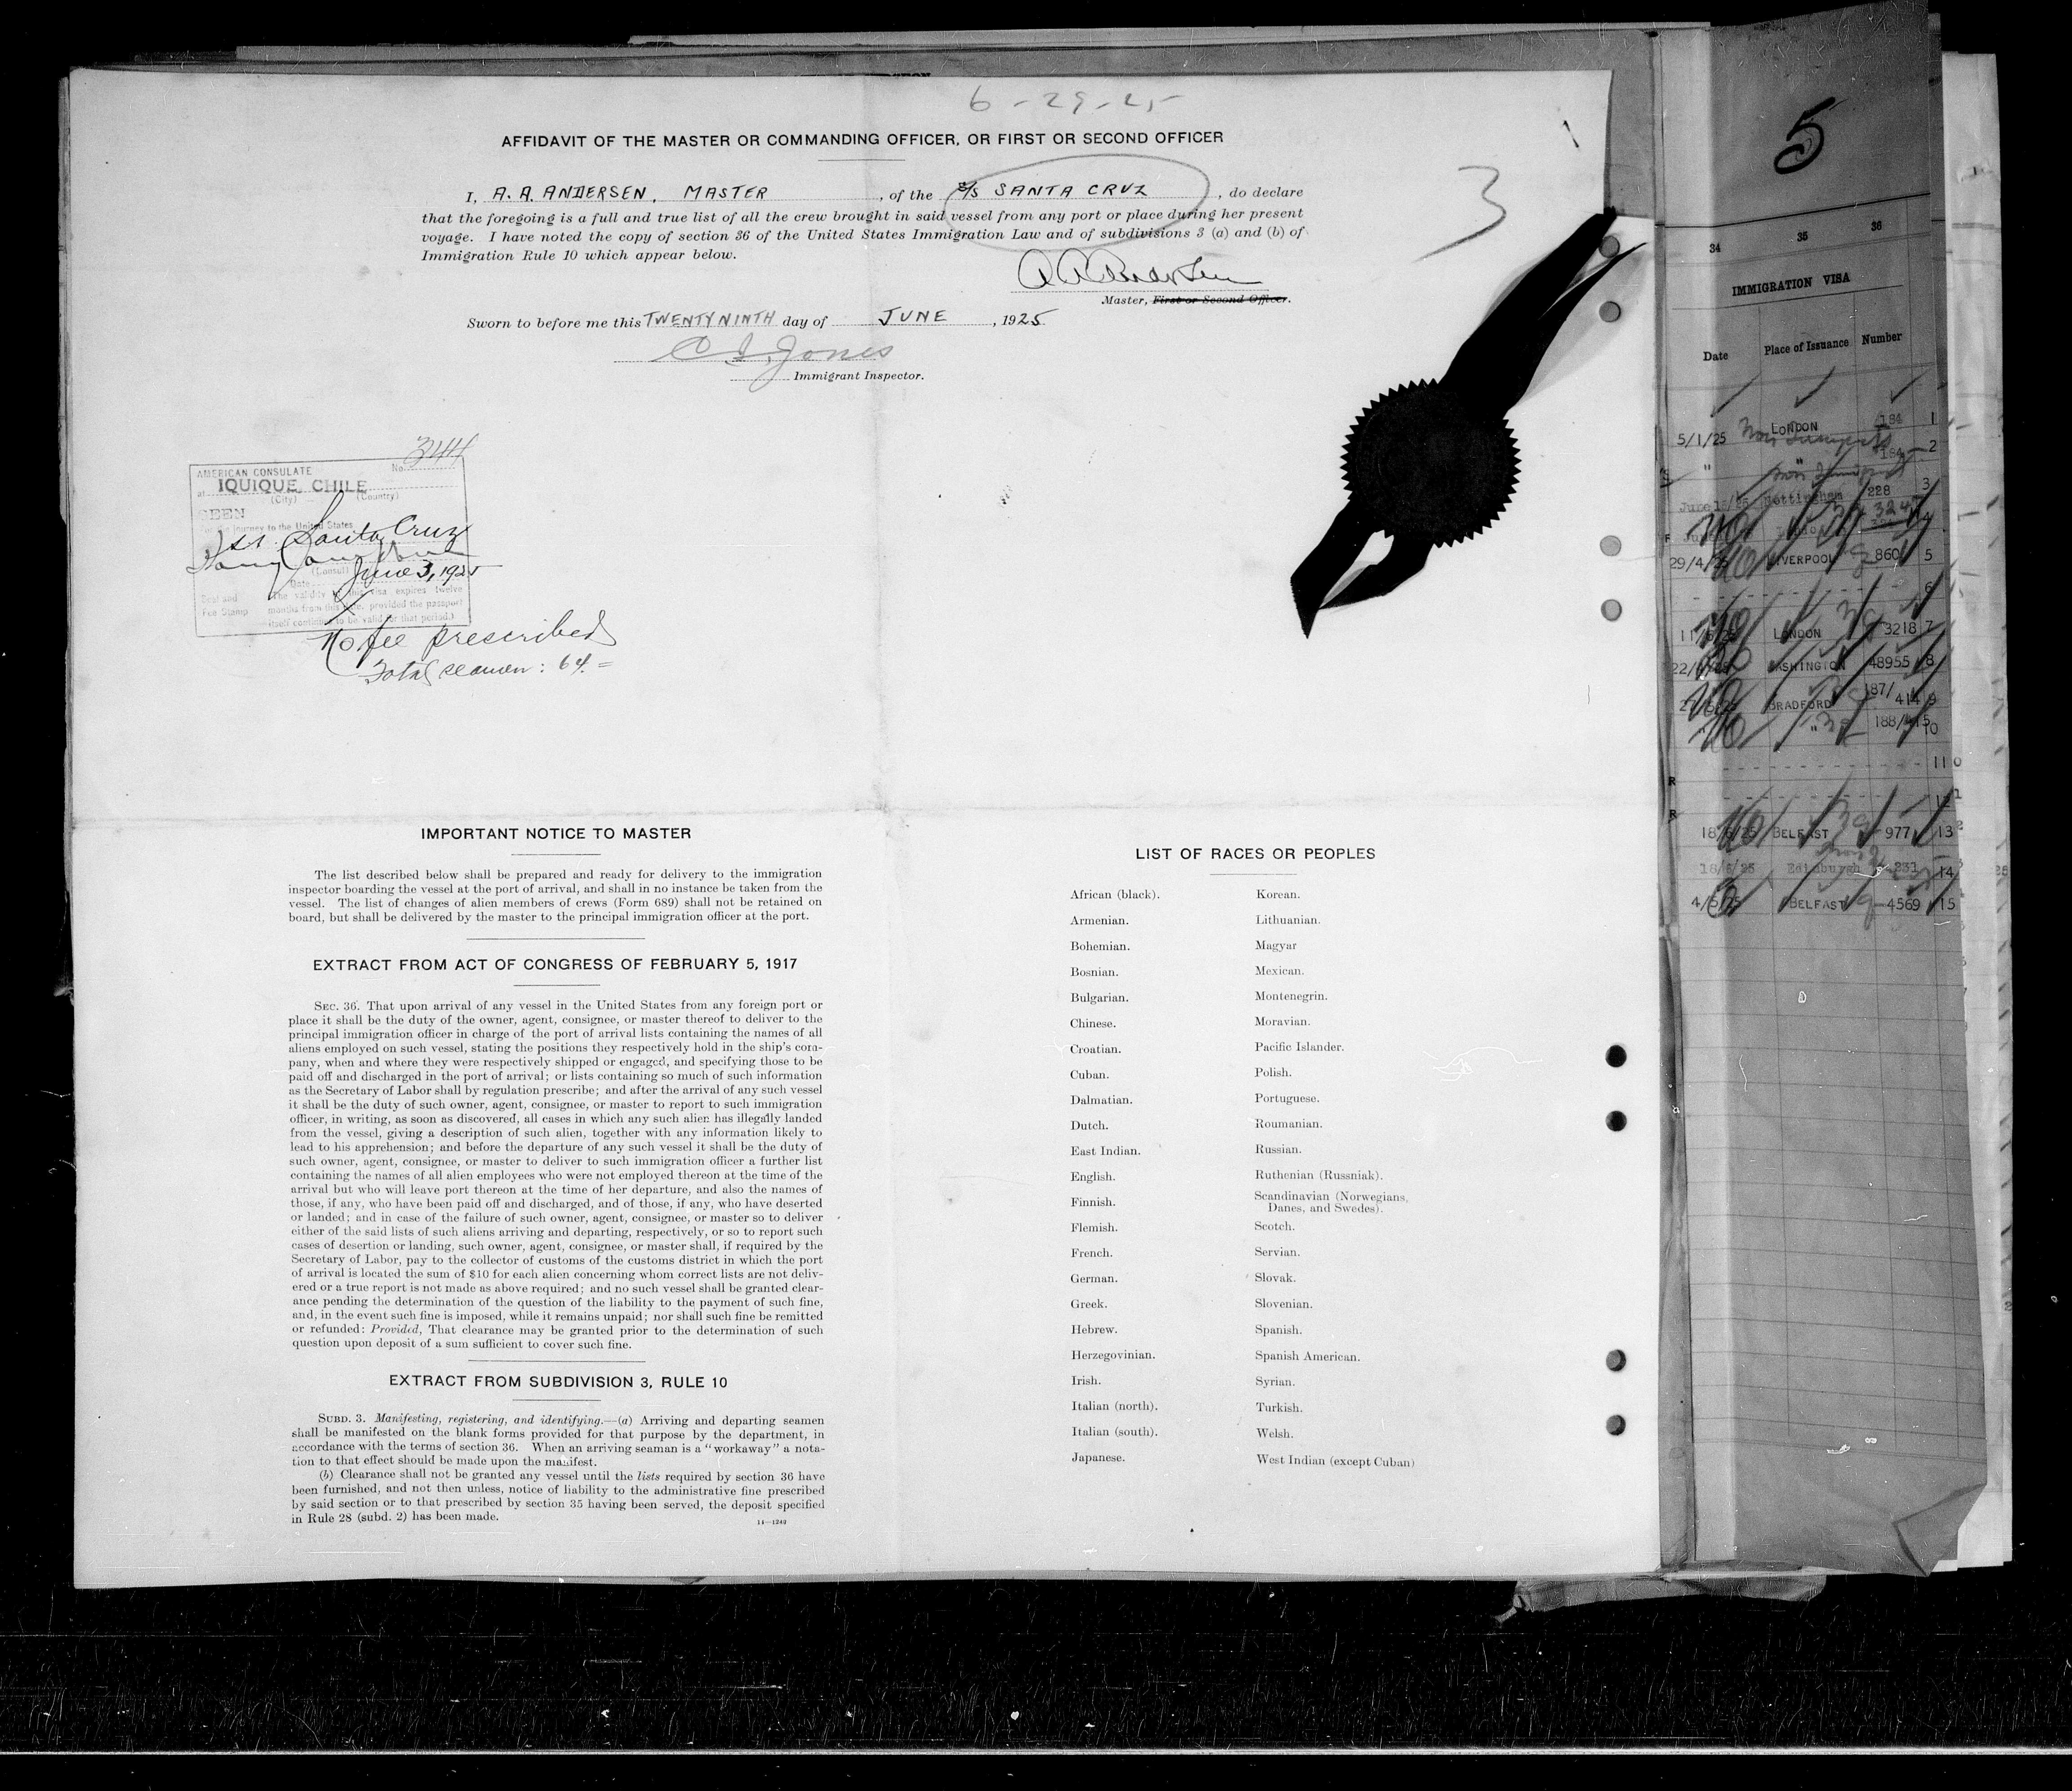 6-29-25
AFFIDAVIT OF THE MASTER OR COMMANDING OFFICER, OR FIRST OR SECOND OFFICER
I, A. A. ANDERSEN, MASTER, of the S/S SANTA CRUZ, do declare
that the foregoing is a full and true list of all the crew brought in said vessel from any port or place during her present
voyage. I have noted the copy of section 36 of the United States Immigration Law and of subdivisions 3 (a) and (b) of
Immigration Rule 10 which appear below.
3
A A Andersen
Master, First or Second Officer.
Sworn to before me this TWENTY NINTH day of JUNE, 1925
Jones
Immigrant Inspector.
AMERICAN CONSULATE No. 344
at IQUIQUE, CHILE
(City) (Country)
SEEN
for the journey to the United States
Santa Cruz
(Consul)
Date June 3, 1925
Seal and Fee Stamp
The validity of this visa expires twelve
months from this date, provided the passport
itself continues to be valid for that period.
No fee prescribed
Total seamen: 64.=
IMPORTANT NOTICE TO MASTER
The list described below shall be prepared and ready for delivery to the immigration
inspector boarding the vessel at the port of arrival, and shall in no instance be taken from the
vessel. The list of changes of alien members of crews (Form 689) shall not be retained on
board, but shall be delivered by the master to the principal immigration officer at the port.
EXTRACT FROM ACT OF CONGRESS OF FEBRUARY 5, 1917
SEC. 36. That upon arrival of any vessel in the United States from any foreign port or
place it shall be the duty of the owner, agent, consignee, or master thereof to deliver to the
principal immigration officer in charge of the port of arrival lists containing the names of all
aliens employed on such vessel, stating the positions they respectively hold in the ship's com-
pany, when and where they were respectively shipped or engaged, and specifying those to be
paid off and discharged in the port of arrival; or lists containing so much of such information
as the Secretary of Labor shall by regulation prescribe; and after the arrival of any such vessel
it shall be the duty of such owner, agent, consignee, or master to report to such immigration
officer, in writing, as soon as discovered, all cases in which any such alien has illegally landed
from the vessel, giving a description of such alien, together with any information likely to
lead to his apprehension; and before the departure of any such vessel it shall be the duty of
such owner, agent, consignee, or master to deliver to such immigration officer a further list
containing the names of all alien employees who were not employed thereon at the time of the
arrival but who will leave port thereon at the time of her departure, and also the names of
those, if any, who have been paid off and discharged, and of those, if any, who have deserted
or landed; and in case of the failure of such owner, agent, consignee, or master so to deliver
either of the said lists of such aliens arriving and departing, respectively, or so to report such
cases of desertion or landing, such owner, agent, consignee, or master shall, if required by the
Secretary of Labor, pay to the collector of customs of the customs district in which the port
of arrival is located the sum of $10 for each alien concerning whom correct lists are not deliv-
ered or a true report is not made as above required; and no such vessel shall be granted clear-
ance pending the determination of the question of the liability to the payment of such fine,
and, in the event such fine is imposed, while it remains unpaid; nor shall such fine be remitted
or refunded: Provided, That clearance may be granted prior to the determination of such
question upon deposit of a sum sufficient to cover such fine.
EXTRACT FROM SUBDIVISION 3, RULE 10
SUBD. 3. Manifesting, registering, and identifying.—(a) Arriving and departing seamen
shall be manifested on the blank forms provided for that purpose by the department, in
accordance with the terms of section 36. When an arriving seaman is a "workaway" a nota-
tion to that effect should be made upon the manifest.
(b) Clearance shall not be granted any vessel until the lists required by section 36 have
been furnished, and not then unless, notice of liability to the administrative fine prescribed
by said section or to that prescribed by section 35 having been served, the deposit specified
in Rule 28 (subd. 2) has been made.
14—1240
LIST OF RACES OR PEOPLES
African (black).
Armenian.
Bohemian.
Bosnian.
Bulgarian.
Chinese.
Croatian.
Cuban.
Dalmatian.
Dutch.
East Indian.
English.
Finnish.
Flemish.
French.
German.
Greek.
Hebrew.
Herzegovinian.
Irish.
Italian (north).
Italian (south).
Japanese.
Korean.
Lithuanian.
Magyar
Mexican.
Montenegrin.
Moravian.
Pacific Islander.
Polish.
Portuguese.
Roumanian.
Russian.
Ruthenian (Russniak).
Scandinavian (Norwegians,
Danes, and Swedes).
Scotch.
Servian.
Slovak.
Slovenian.
Spanish.
Spanish American.
Syrian.
Turkish.
Welsh.
West Indian (except Cuban)
5
34 35 36
IMMIGRATION VISA
Date Place of Issuance Number
5/1/25 LONDON 184 1
" " 184 2
Nottingham 228 3
29/4/25 LIVERPOOL 860 5
6
LONDON 3218 7
WASHINGTON 48955 8
BRADFORD 187/414 9
" 188/415 10
11
12
18/6/25 BELFAST 977 13
18/6/25 Edinburgh 231 14
4/5/25 BELFAST 4569 15